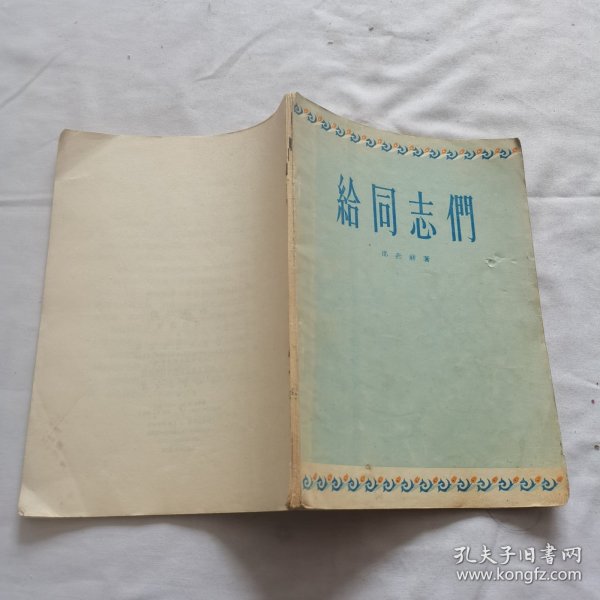 給同志們
邵燕祥著
孔夫子旧书网
www.kongfz.com